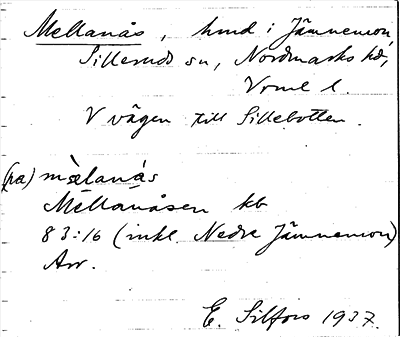 Mellanås, hmd i Jämnemon,
Silleruds sn, Nordmarks hd,
Vrml l.
V vägen till Sillebotten.
(pa) mælanás
Mellanåsen kb
83:16 (inkl. Nedre Jämnemon)
Arr.
E. Silfors 1937.